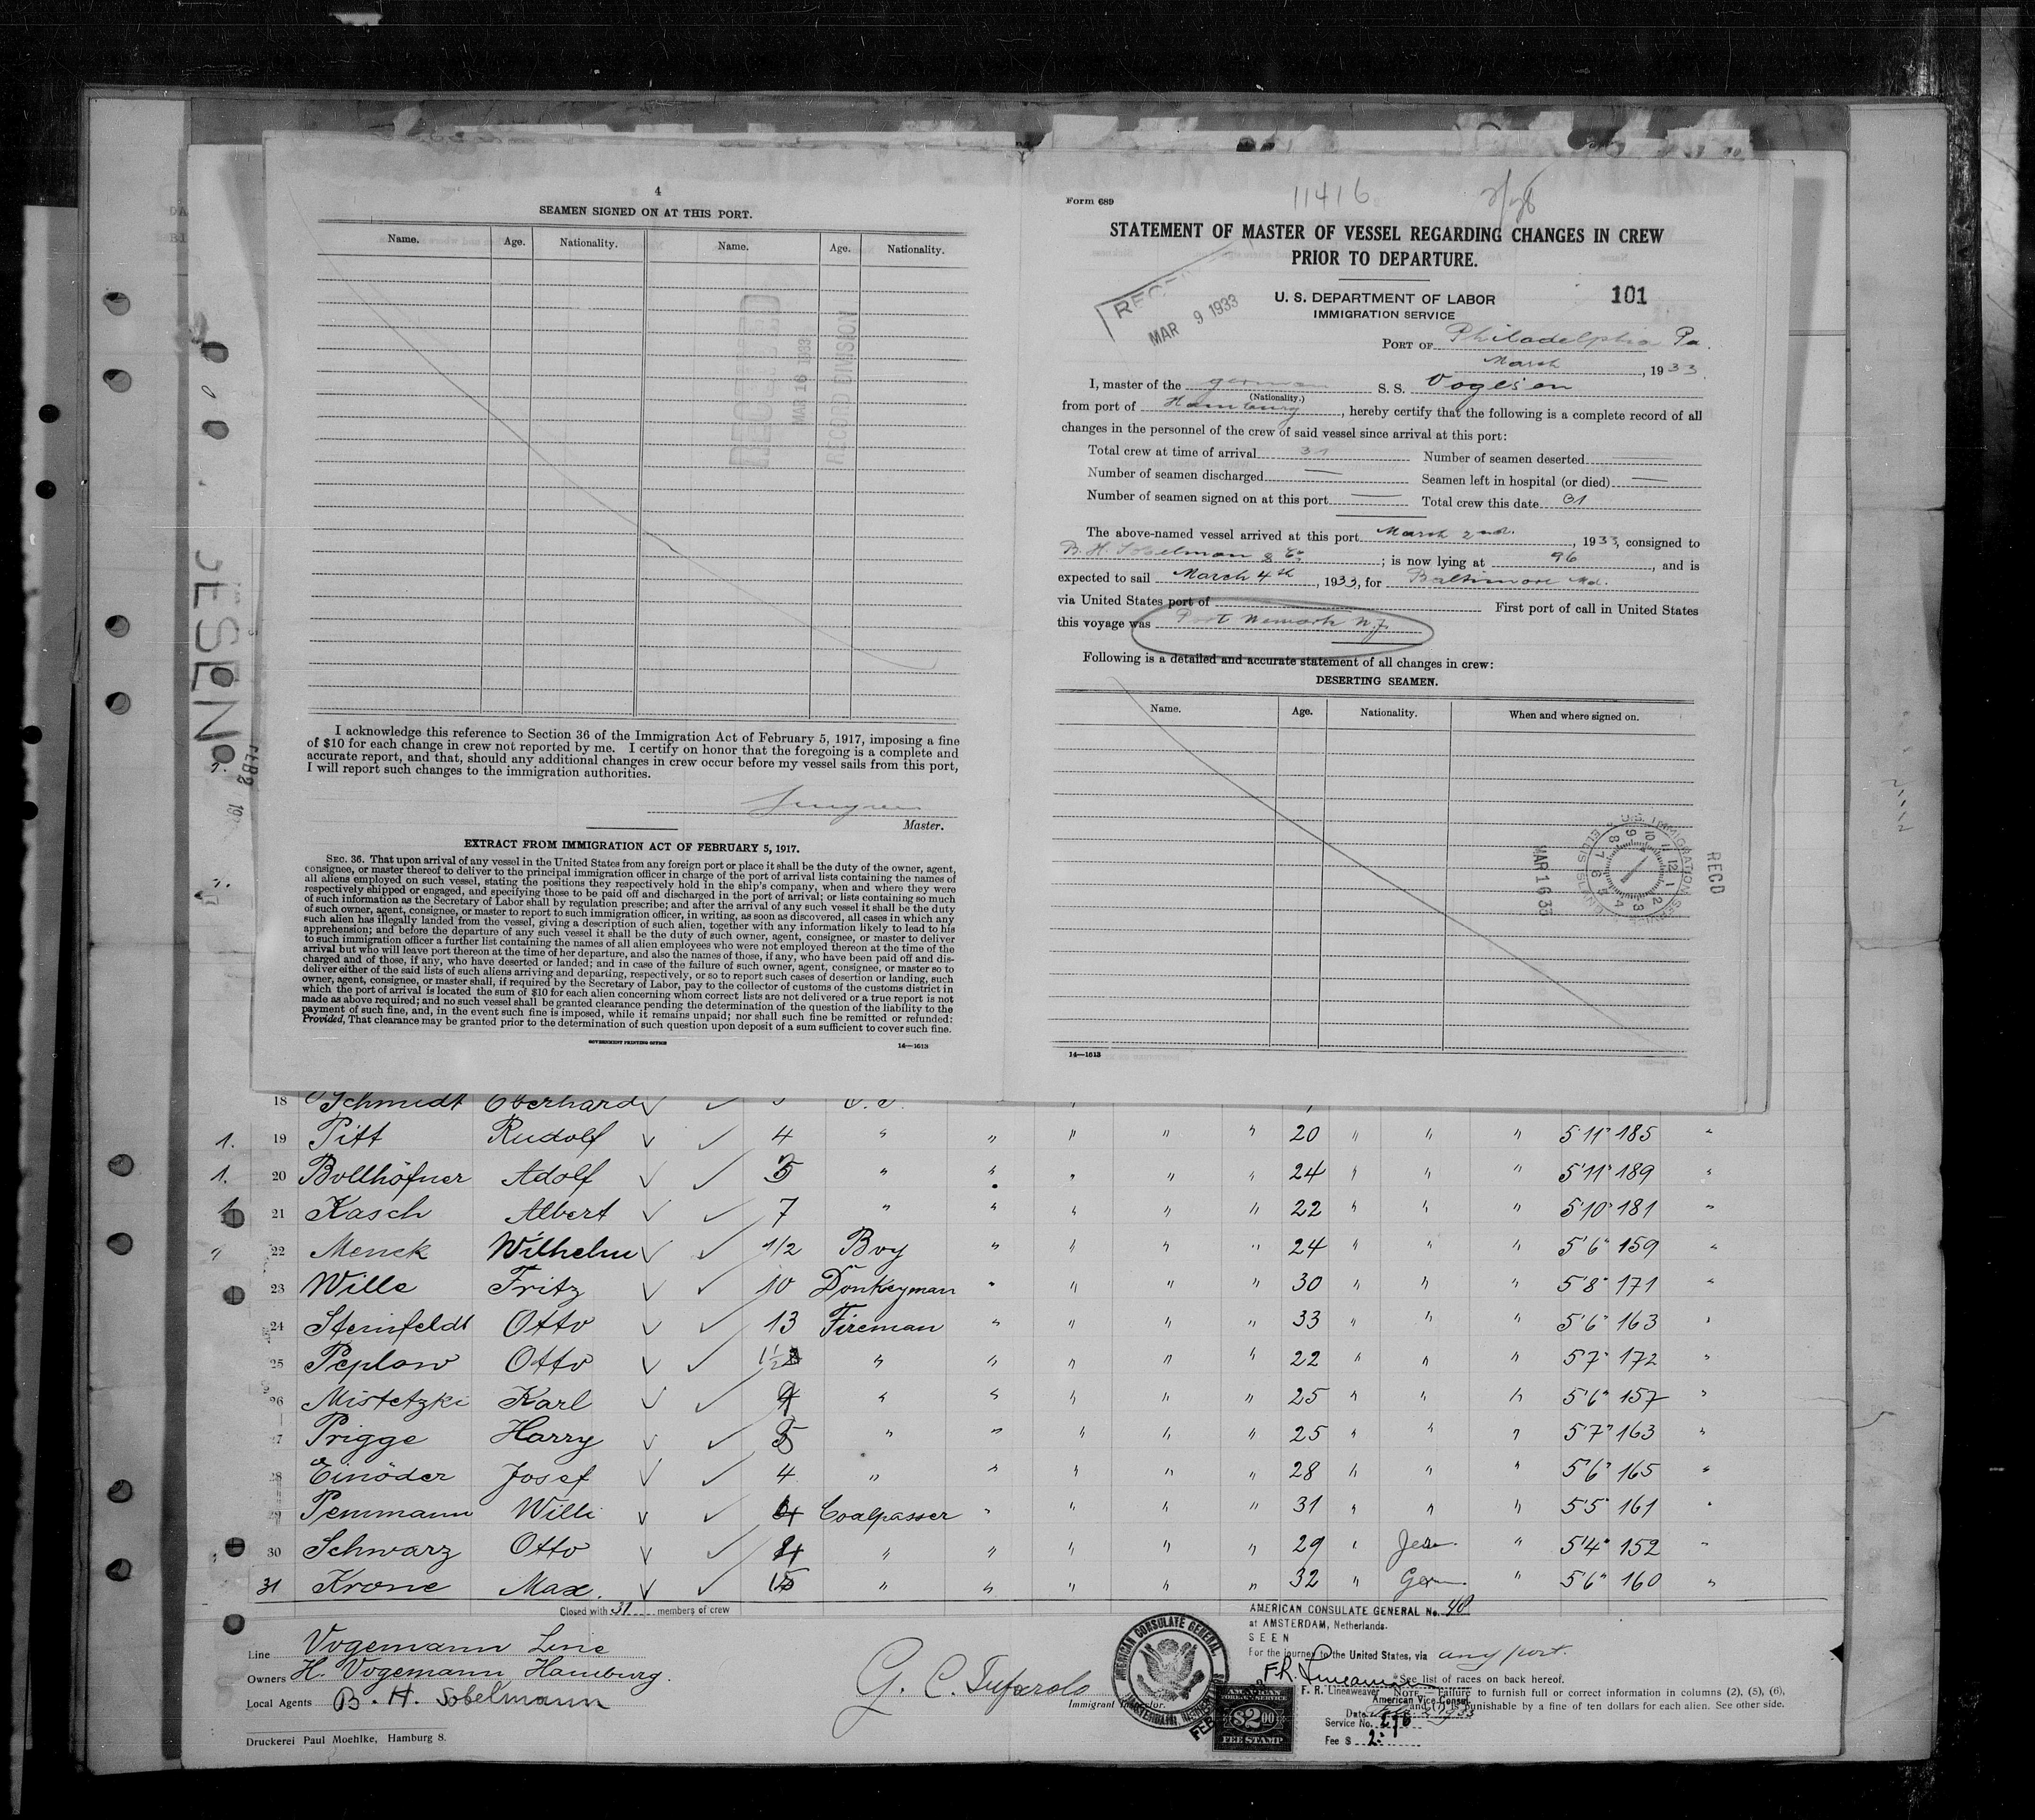 4
SEAMEN SIGNED ON AT THIS PORT.
Name. Age. Nationality. Name. Age. Nationality.
RECEIVED
MAR 16 1933
RECORD DIVISION
I acknowledge this reference to Section 36 of the Immigration Act of February 5, 1917, imposing a fine
of $10 for each change in crew not reported by me. I certify on honor that the foregoing is a complete and
accurate report, and that, should any additional changes in crew occur before my vessel sails from this port,
I will report such changes to the immigration authorities.
Master.
EXTRACT FROM IMMIGRATION ACT OF FEBRUARY 5, 1917.
SEC. 36. That upon arrival of any vessel in the United States from any foreign port or place it shall be the duty of the owner, agent,
consignee, or master thereof to deliver to the principal immigration officer in charge of the port of arrival lists containing the names of
all aliens employed on such vessel, stating the positions they respectively hold in the ship's company, when and where they were
respectively shipped or engaged, and specifying those to be paid off and discharged in the port of arrival; or lists containing so much
of such information as the Secretary of Labor shall by regulation prescribe; and after the arrival of any such vessel it shall be the duty
of such owner, agent, consignee, or master to report to such immigration officer, in writing, as soon as discovered, all cases in which any
such alien has illegally landed from the vessel, giving a description of such alien, together with any information likely to lead to his
apprehension; and before the departure of any such vessel it shall be the duty of such owner, agent, consignee, or master to deliver
to such immigration officer a further list containing the names of all alien employees who were not employed thereon at the time of the
arrival but who will leave port thereon at the time of her departure, and also the names of those, if any, who have been paid off and dis-
charged and of those, if any, who have deserted or landed; and in case of the failure of such owner, agent, consignee, or master so to
deliver either of the said lists of such aliens arriving and departing, respectively, or so to report such cases of desertion or landing, such
owner, agent, consignee, or master shall, if required by the Secretary of Labor, pay to the collector of customs of the customs district in
which the port of arrival is located the sum of $10 for each alien concerning whom correct lists are not delivered or a true report is not
made as above required; and no such vessel shall be granted clearance pending the determination of the question of the liability to the
payment of such fine, and, in the event such fine is imposed, while it remains unpaid; nor shall such fine be remitted or refunded:
Provided, That clearance may be granted prior to the determination of such question upon deposit of a sum sufficient to cover such fine.
GOVERNMENT PRINTING OFFICE 14—1613
Form 689 11416
STATEMENT OF MASTER OF VESSEL REGARDING CHANGES IN CREW
PRIOR TO DEPARTURE.
MAR 9 1933
U. S. DEPARTMENT OF LABOR 101
IMMIGRATION SERVICE
PORT OF Philadelphia Pa.
March, 1933
I, master of the german S. S. Vogesen
(Nationality.)
from port of Hamburg, hereby certify that the following is a complete record of all
changes in the personnel of the crew of said vessel since arrival at this port:
Total crew at time of arrival 31 Number of seamen deserted —
Number of seamen discharged — Seamen left in hospital (or died) —
Number of seamen signed on at this port — Total crew this date 31
The above-named vessel arrived at this port March 2nd, 1933, consigned to
B. H. Sobelman & Co; is now lying at 96, and is
expected to sail March 4th, 1933, for Baltimore Md.
via United States port of First port of call in United States
this voyage was Port Newark N.J.
Following is a detailed and accurate statement of all changes in crew:
DESERTING SEAMEN.
Name. Age. Nationality. When and where signed on.
U.S. IMMIGRATION SERVICE ELLIS ISLAND
RECD
MAR 16 33
14—1613
18 Schmidt Eberhard
1. 19 Pitt Rudolf 4 " " " " " 20 " " " 5'11" 185 "
1. 20 Bollhöfner Adolf 5 " " " " " 24 " " " 5'11" 189 "
21 Kasch Albert 7 " " " " " 22 " " " 5'10" 181 "
22 Menck Wilhelm 1/2 Boy " " " " 24 " " " 5'6" 159 "
23 Wille Fritz 10 Donkeyman " " " " 30 " " " 5'8" 171 "
24 Steinfeldt Otto 13 Fireman " " " " 33 " " " 5'6" 163 "
25 Peplow Otto 1½ " " " " " 22 " " " 5'7" 172 "
26 Mistetzki Karl " " " " " 25 " " " 5'6" 157 "
27 Prigge Harry " " " " " 25 " " " 5'7" 163 "
28 Einöder Josef 4 " " " " " 28 " " " 5'6" 165 "
29 Pemmann Willi Coalpasser " " " " 31 " " " 5'5" 161 "
30 Schwarz Otto " " " " " 29 " " 5'4" 152 "
31 Krone Max. " " " " " 32 " Ger. " 5'6" 160 "
Closed with 31 members of crew
Line Vogemann Line
Owners H. Vogemann Hamburg.
Local Agents B. H. Sobelmann
Druckerei Paul Moehlke, Hamburg 8.
Immigrant Inspector.
AMERICAN CONSULATE GENERAL
AMSTERDAM, NETHERLANDS
FEB
AMERICAN
FOREIGN SERVICE
$2.00
FEE STAMP
AMERICAN CONSULATE GENERAL No. 40
at AMSTERDAM, Netherlands.
SEEN
For the journey to the United States, via any port.
F.R. Lineaweaver
*See list of races on back hereof.
F. R. Lineaweaver NOTE.—Failure to furnish full or correct information in columns (2), (5), (6),
American Vice Consul.
and (7) is punishable by a fine of ten dollars for each alien. See other side.
Date
Service No.
Fee $ 2.-